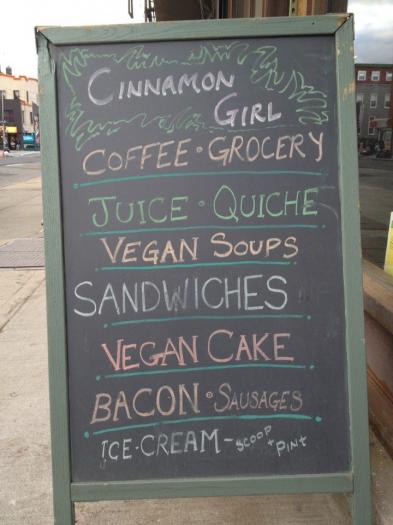 CINNAMON
GIRL
COFFEE • GROCERY
JUICE • QUICHE
VEGAN SOUPS
SANDWICHES
VEGAN CAKE
BACON • SAUSAGES
ICE-CREAM - SCOOP + PINT